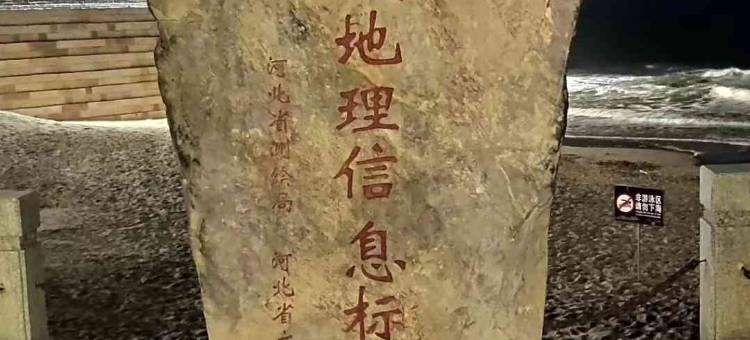 地理信息标
河北省测绘局 河北省
非游泳区
请勿下海